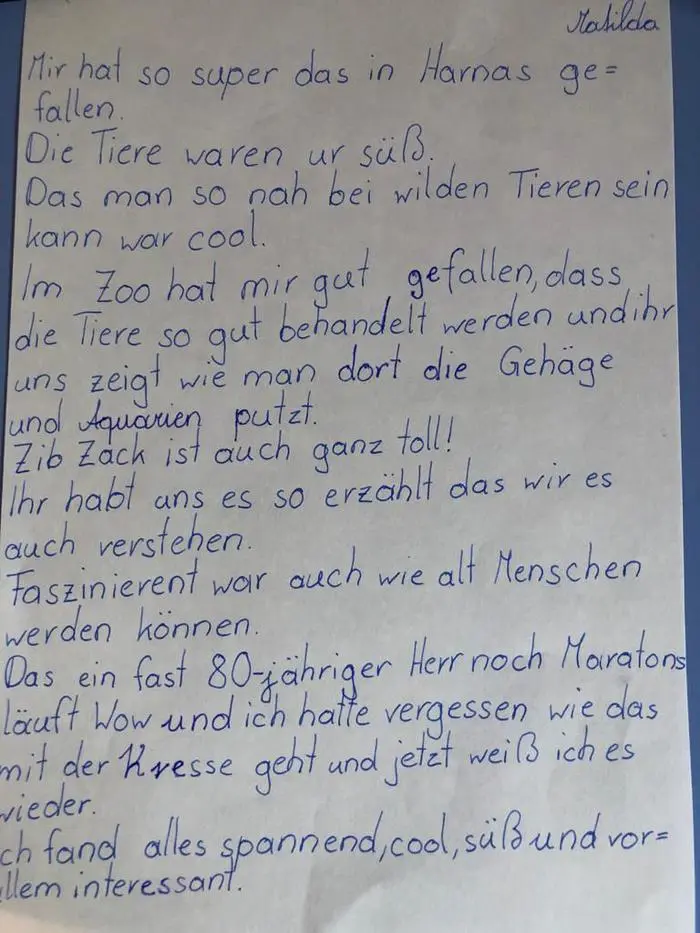 Matilda
Mir hat so super das in Harnas ge=
fallen.
Die Tiere waren ur süß.
Das man so nah bei wilden Tieren sein
kann war cool.
Im Zoo hat mir gut gefallen, dass
die Tiere so gut behandelt werden und ihr
uns zeigt wie man dort die Gehäge
und Aquarien putzt.
Zib Zack ist auch ganz toll!
Ihr habt uns es so erzählt das wir es
auch verstehen.
Faszinierent war auch wie alt Menschen
werden können.
Das ein fast 80-jähriger Herr noch Maratons
läuft Wow und ich hatte vergessen wie das
mit der Kresse geht und jetzt weiß ich es
wieder.
ch fand alles spannend, cool, süß und vor=
llem interessant.